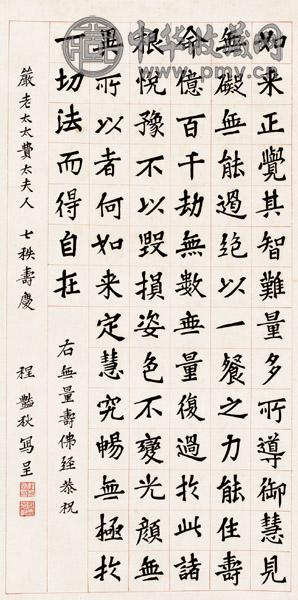 中华收藏网
如来正覺其智難量多所導御慧見
無礙無能遏絕以一餐之力能住壽
命億百千劫無數無量復過於此諸
根悅豫不以毀損姿色不變光顏無
異所以者何如来定慧究暢無極於
一切法而得自在
右無量壽佛經恭祝
嚴老太太費太夫人 七秩壽慶 程艷秋寫呈